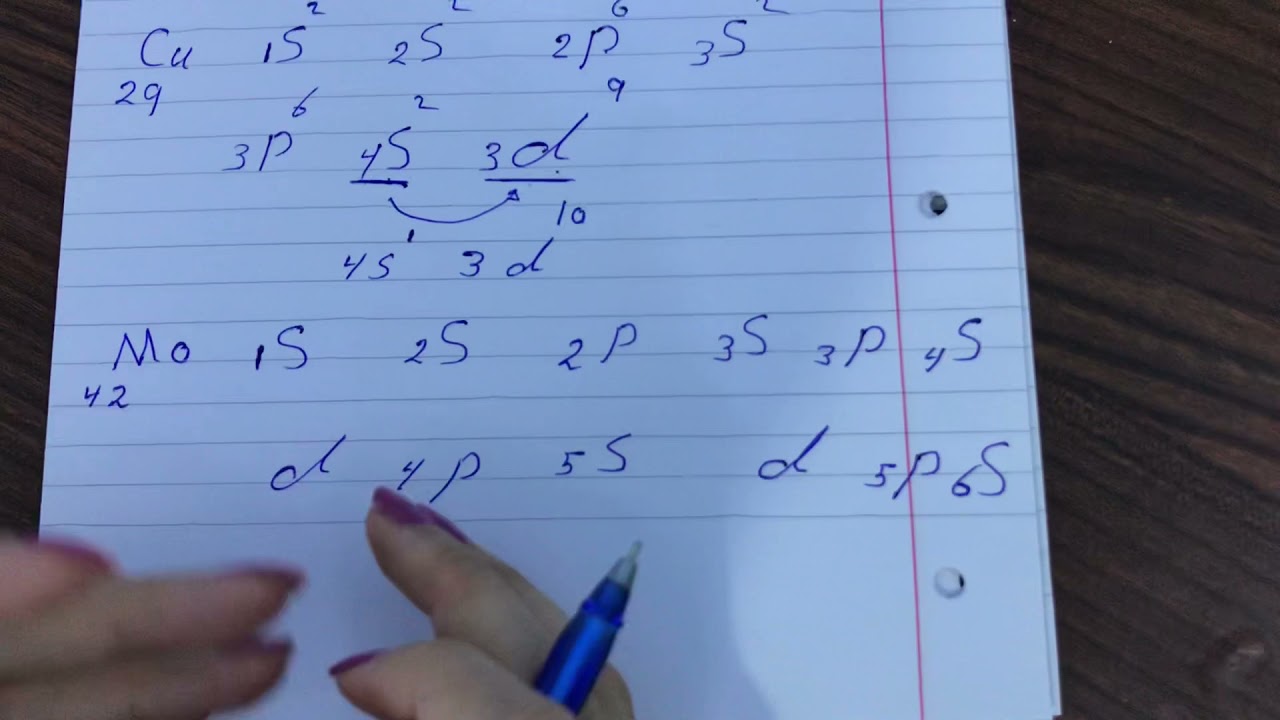 Cu 1S² 2S² 2p⁶ 3S²
29
3p⁶ 4S² 3d⁹
4s¹ 3d¹⁰
Mo 1S 2S 2p 3S 3p 4S
42
d 4p 5S d 5p 6S